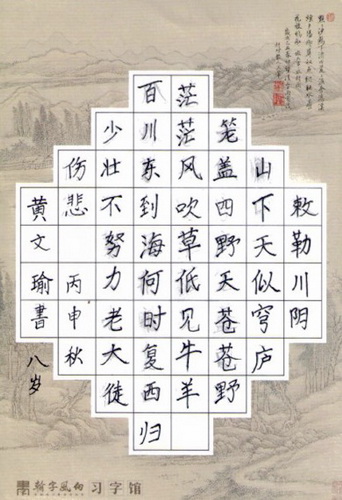 敕勒川阴
山下天似穹庐
笼盖四野天苍苍野
茫茫风吹草低见牛羊
百川东到海何时复西归
少壮不努力老大徒
伤悲 丙申秋
黄文瑜書八岁
习字馆